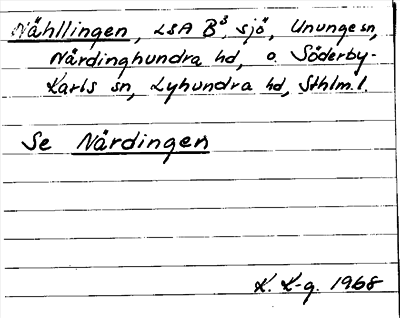 Nähllingen, LSA B³ sjö, Ununge sn,
Närdinghundra hd, o. Söderby-
Karls sn, Lyhundra hd, Sthlm. l.
Se Närdingen
K. K-g. 1968